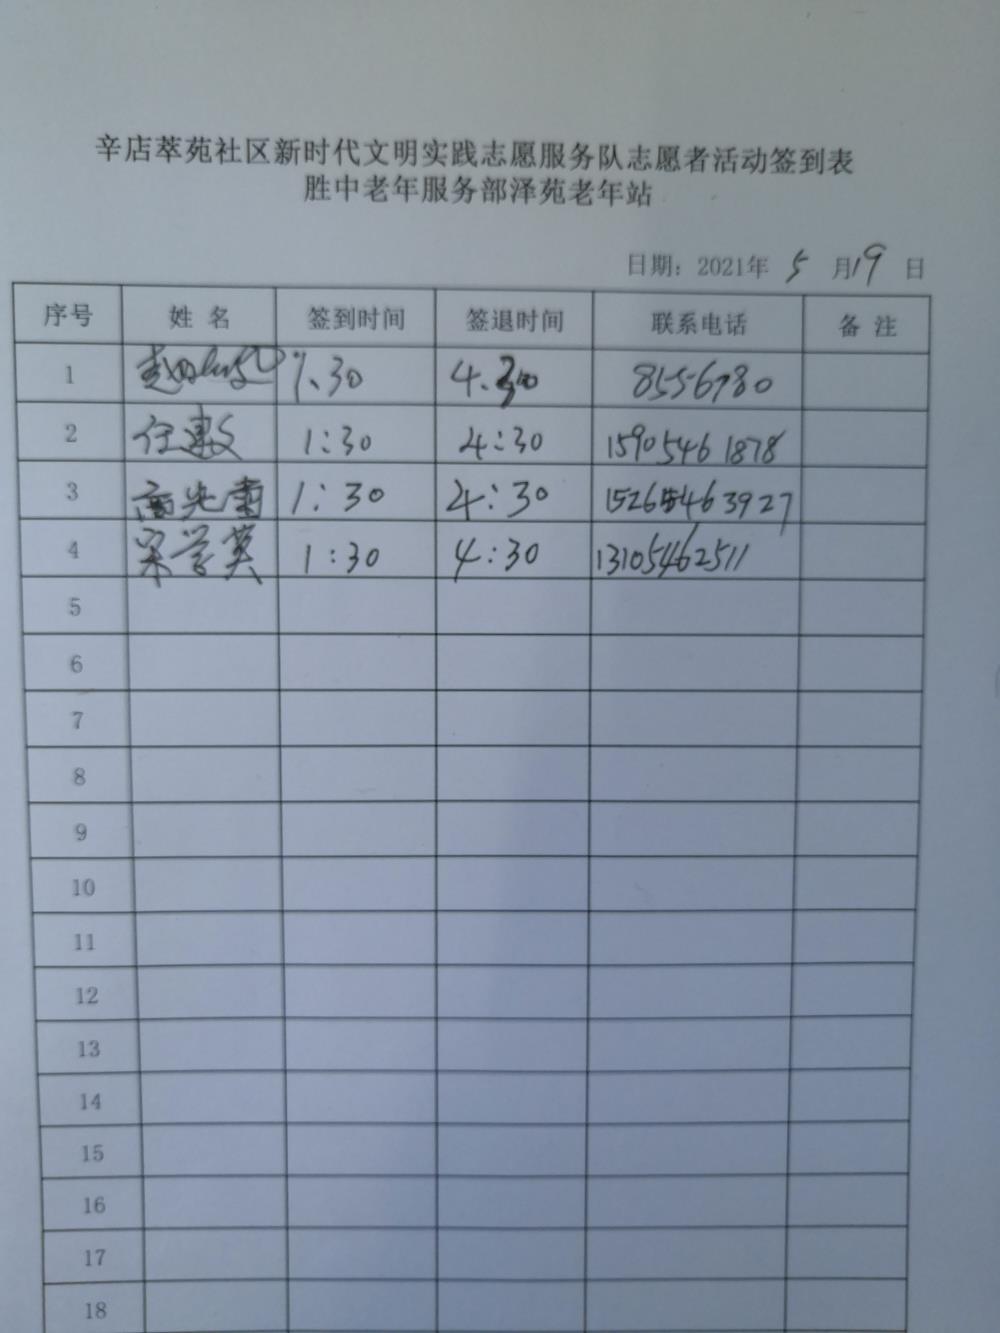 辛店萃苑社区新时代文明实践志愿服务队志愿者活动签到表
胜中老年服务部泽苑老年站
日期：2021年 5 月19 日
序号 姓 名 签到时间 签退时间 联系电话 备 注
1 赵 1.30 4.30 8556780
2 任惠文 1:30 4:30 15905461878
3 高 1:30 4:30 15265463927
4 宋学英 1:30 4:30 13105462511
5
6
7
8
9
10
11
12
13
14
15
16
17
18